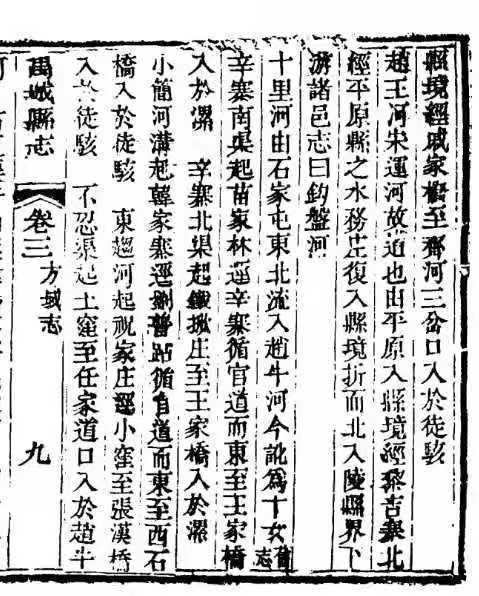 縣境經戚家橋至齊河三岔口入於徒駭
趙王河宋運河故道也由平原入縣境經黎吉寨北
經平原縣之水務庄復入縣境折而北入陵縣界下
游諸邑志曰鈎盤河
十里河由石家屯東北流入趙牛河今訛爲十女舊志
辛寨南渠起苗家林逕辛寨循官道而東至王家橋
入於漯 辛寨北渠起鐵掀庄至王家橋入於漯
小簡河溝起韓家寨逕劉普站循官道而東至西石
橋入於徒駭 東趨河起祝家庄逕小窪至張漢橋
入於徒駭 不忍渠起土窪至任家道口入於趙牛
禹城縣志 卷三 方域志 九